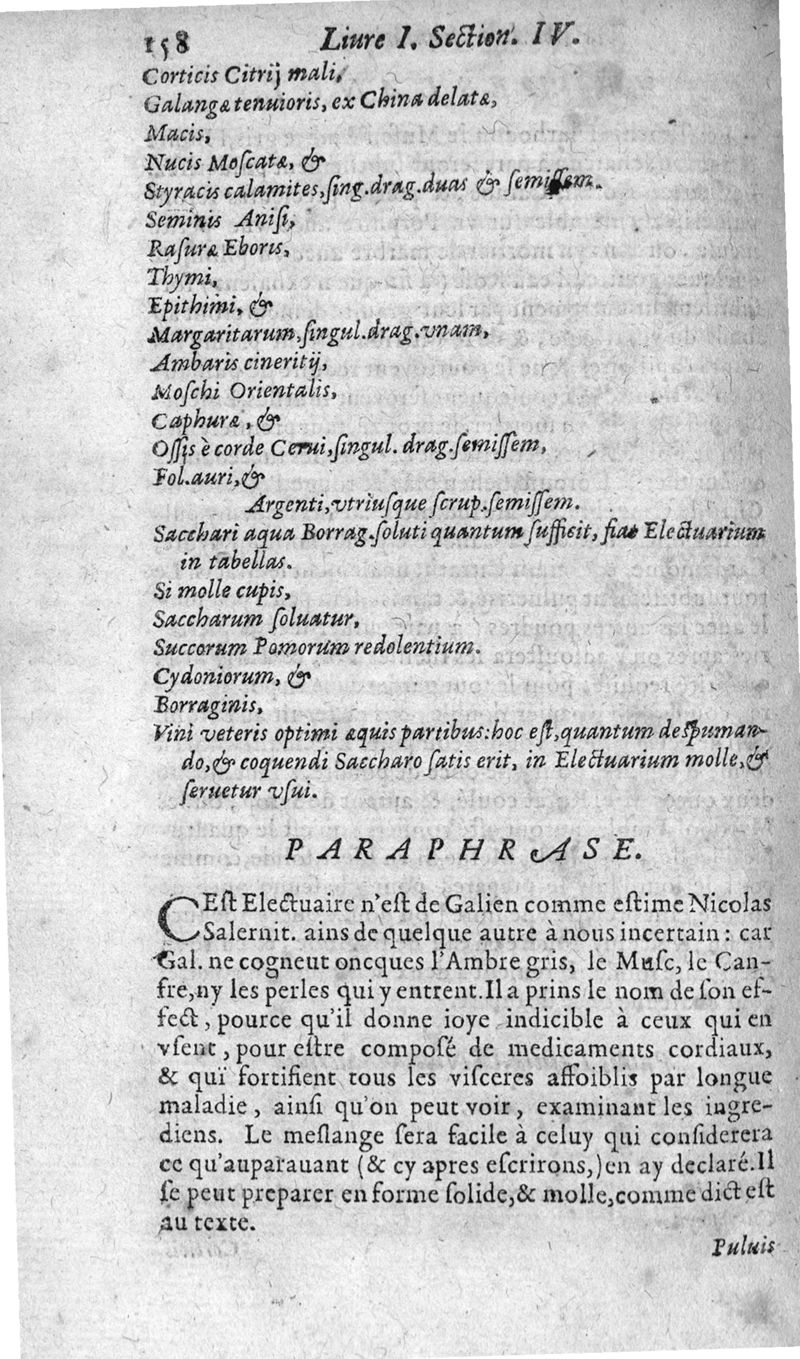 158 Liure I. Section. IV.
Corticis Citrij mali,
Galangæ tenuioris, ex China delatæ,
Macis,
Nucis Moſcatæ, &
Styracis calamites,ſing.drag.duas & ſemiſſem.
Seminis Aniſi,
Raſuræ Eboris,
Thymi,
Epithimi, &
Margaritarum,ſingul.drag.vnam,
Ambaris cineritij,
Moſchi Orientalis,
Caphuræ, &
Oſſis è corde Cerui,ſingul. drag.ſemiſſem,
Fol.auri,&
Argenti,vtriuſque ſcrup.ſemiſſem.
Sacchari aqua Borrag.ſoluti quantum ſufficit, fiat Electuarium
in tabellas.
Si molle cupis,
Saccharum ſoluatur,
Succorum Pomorum redolentium.
Cydoniorum, &
Borraginis,
Vini veteris optimi æquis partibus:hoc eſt,quantum deſpuman-
do,& coquendi Saccharo ſatis erit, in Electuarium molle,&
ſeruetur vſui.
PARAPHRASE.
CEſt Electuaire n'eſt de Galien comme eſtime Nicolas
Salernit. ains de quelque autre à nous incertain : car
Gal. ne cogneut oncques l'Ambre gris, le Muſc, le Can-
fre,ny les perles qui y entrent.Il a prins le nom de ſon ef-
fect, pource qu'il donne ioye indicible à ceux qui en
vſent, pour eſtre compoſé de medicaments cordiaux,
& qui fortifient tous les viſceres affoiblis par longue
maladie, ainſi qu'on peut voir, examinant les ingre-
diens. Le meſlange ſera facile à celuy qui conſiderera
ce qu'auparauant (& cy apres eſcrirons,)en ay declaré.Il
ſe peut preparer en forme ſolide,& molle,comme dict eſt
au texte.
Puluis